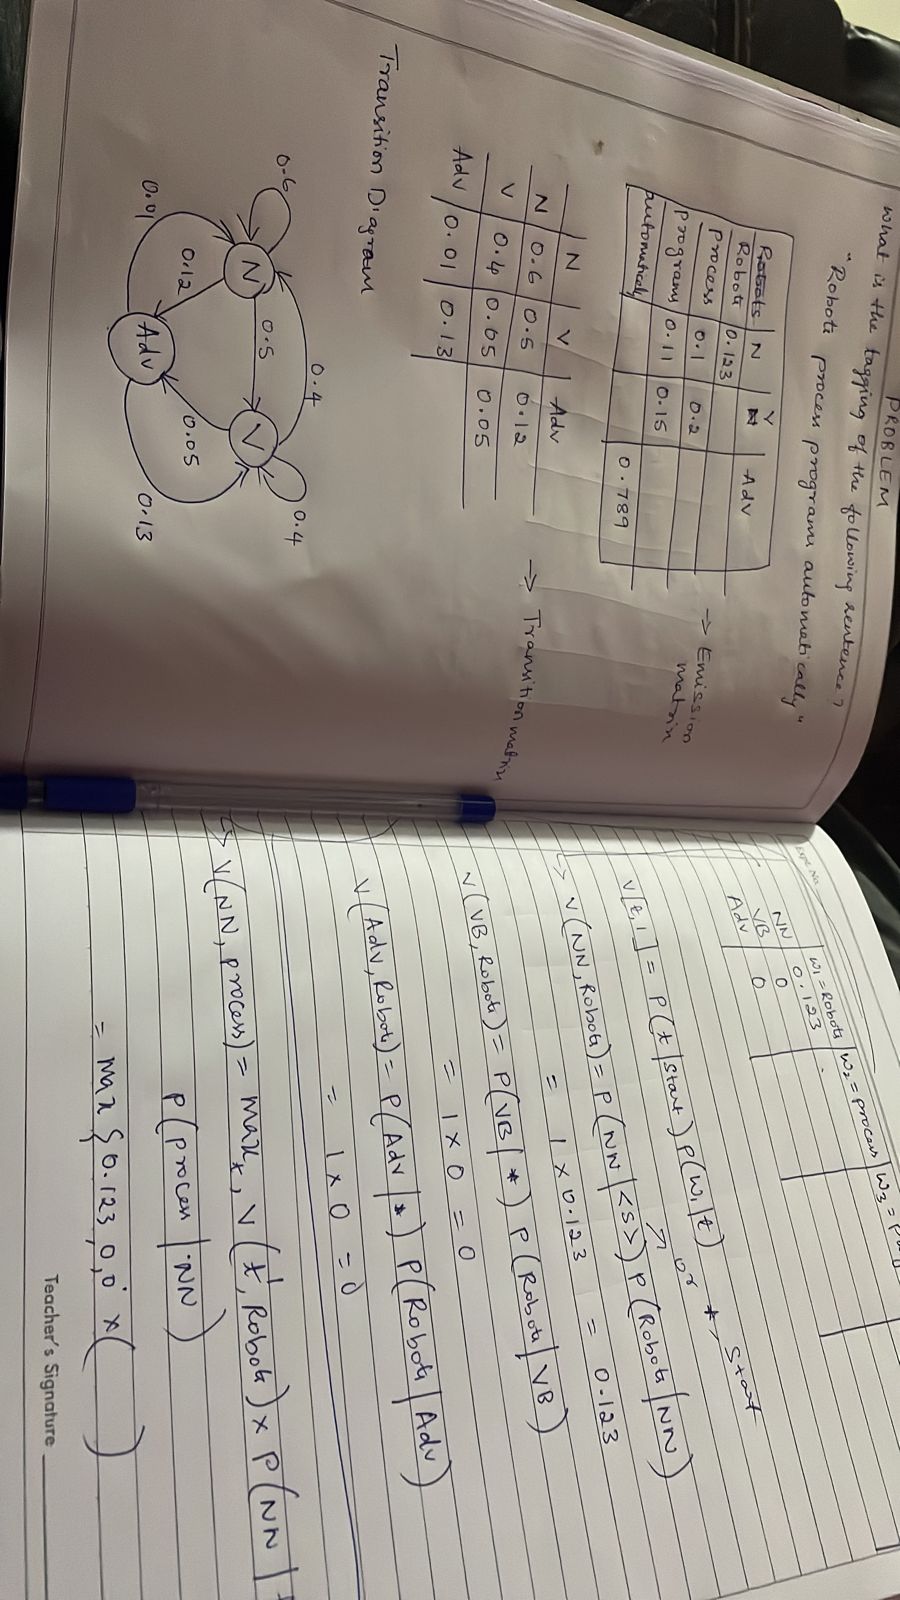 PROBLEM
What is the tagging of the following sentence?
"Robots process programs automatically"
Robots N V Adv
Robots 0.123
process 0.1 0.2
programs 0.11 0.15
automatically 0.789
→ Emission matrix
N V Adv
N 0.6 0.5 0.12
V 0.4 0.05 0.05
Adv 0.01 0.13
→ Transition matrix
Transition Diagram
0.4
0.6 0.4
N 0.5 V
0.12 0.05
0.01 Adv 0.13
Expt. No.
w₁ = Robots w₂ = process w₃ =
NN 0.123
VB 0
Adv 0
V[t,1] = P(t|Start) P(w₁|t)
or *, Start
→ V(NN, Robots) = P(NN|<S>) P(Robots|NN)
= 1 x 0.123 = 0.123
V(VB, Robots) = P(VB|*) P(Robots|VB)
= 1 x 0 = 0
V(Adv, Robots) = P(Adv|*) P(Robots|Adv)
= 1 x 0 = 0
→ V(NN, process) = max t, V(t', Robots) x P(NN|
P(process|NN)
= max { 0.123, 0, 0 x ( )
Teacher's Signature